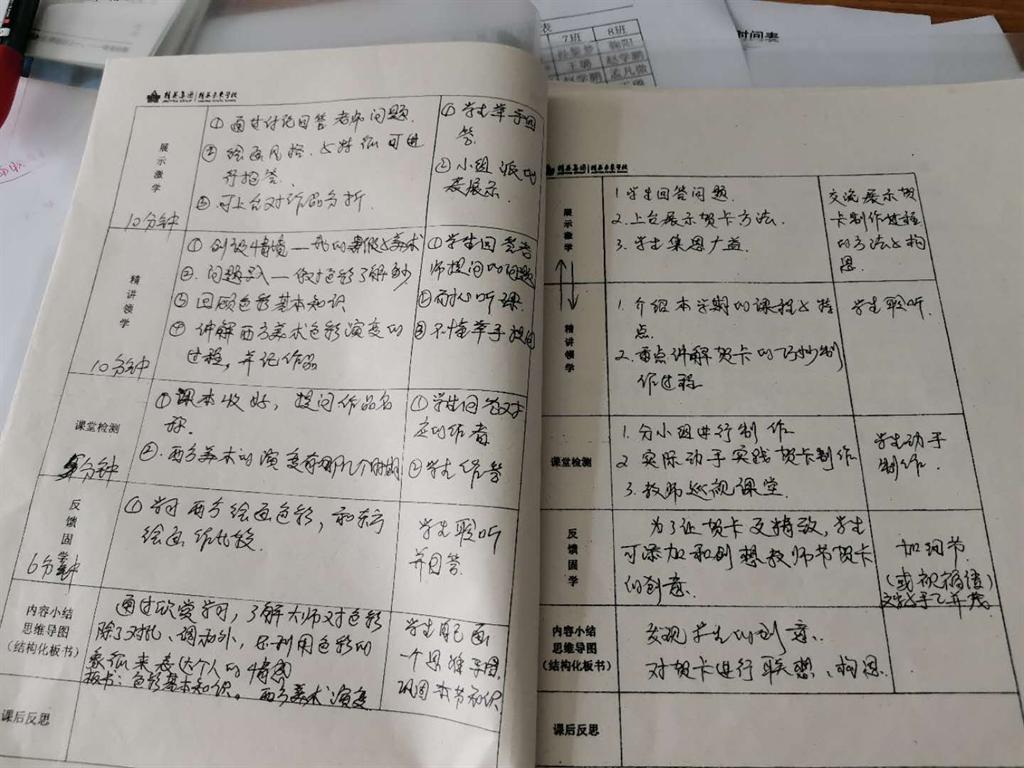 表
7班
8班
时间表
精英集团
展示激学
10分钟
①通过讨论回答老师问题.
②绘画风格.与特征可进
行抢答.
③可上台对作品分析.
①学生举手回
答.
②小组派代
表展示.
精讲领学
10分钟
①创设情境——我的暑假与美术
②.问题导入——你对色彩了解多少
③回顾色彩基本知识
④讲解西方美术色彩演变的
过程,并记作品
①学生回答老
师提问的问题
②耐心听课.
③不懂举手提问
课堂检测
5分钟
①课本收好,提问作品名
称.
②.西方美术的演变有哪几个时期
①学生回答对
应的作者
②学生作答
反馈固学
6分钟
①学习西方绘画色彩,和东方
绘画作比较.
学生聆听
并回答.
内容小结
思维导图
(结构化板书)
通过欣赏学习,了解大师对色彩
除了对比、调和外,还利用色彩的
象征来表达个人的情感
板书:色彩基本知识. 西方美术演变
学生自己画
一个思维导图.
巩固本节知识
课后反思
精英集团
展示激学
1.学生回答问题.
2.上台展示贺卡方法.
3.学生集思广益.
交流展示贺
卡制作过程
的方法与构
思.
精讲领学
1.介绍本学期的课程与特
点.
2.重点讲解贺卡的巧妙制
作过程
学生聆听.
课堂检测
1.分小组进行制作
2 实际动手实践贺卡制作
3.教师巡视课堂
学生动手
制作.
反馈固学
为了让贺卡更精致,学生
可添加和创想教师节贺卡
的创意.
加细节.
(或祝福语)
内容小结
思维导图
(结构化板书)
发现学生的创意.
对贺卡进行联想、构思.
课后反思